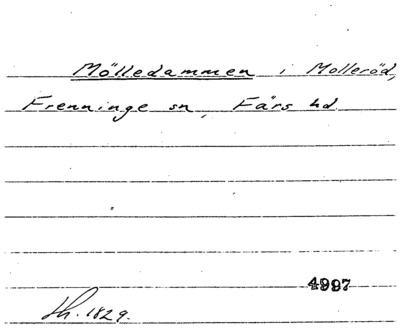 Mölledammen i Molleröd,
Frenninge sn, Färs hd.
4997
Lh. 1829.